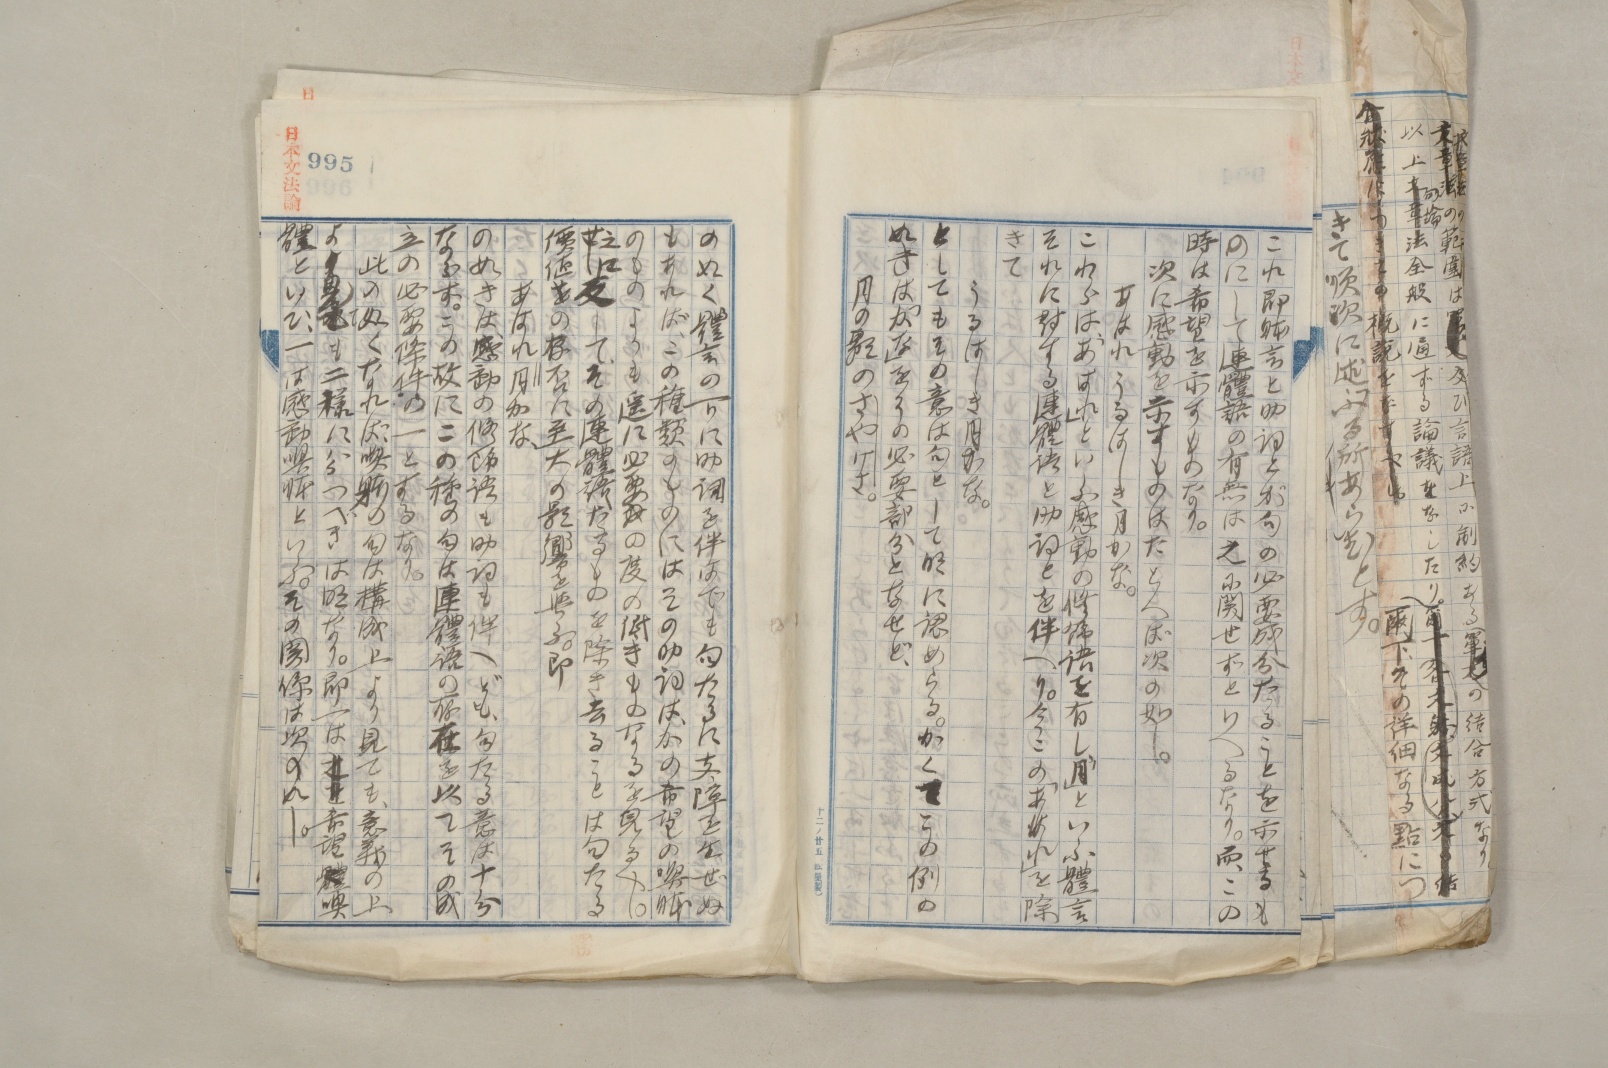 以上章法全般に通ずる論議をなしたり。
爾下その詳細なる點につ
きて順次に述ぶる所あらむとす。
これ即體言と助詞とが句の必要成分たることを示せるも
のにして連體語の有無は之に関せずといへるなり。而、この
時は希望を示すものなり。
次に感動を示すものはたとへば次の如し。
あはれうるはしき月かな。
これらは「あはれ」といふ感動の修飾語を有し「月」といふ體言
それに對する連體語と助詞とを伴へり。今この「あはれ」を除
きて
うるはしき月かな。
としてもその意は句として明に認めらる。かくてこの例の
如きは「かな」をその必要部分となせど、
月の影のさやけさ。
995
日本文法論
の如く體言の下に助詞を伴はでも句たるに支障を生ぜぬ
もあれば、この種類のものにはその助詞は、かの希望の喚體
のものよりも遥に必要の度の低きものなるを見るべし。
之に反して、その連體語たるものを除き去ることは句たる
價値の存否に至大の影響を與ふ。即
あはれ月かな
の如きは感動の修飾語も助詞も伴へども、句たる意は十分
ならず。この故にこの種の句は連體語の存在を以てその成
立の必要條件の一とするなり。
此の如くなれば、喚體の句は構成上より見ても、意義の上
より見るも二様に分つべきは明なり。即一は希望喚
體といひ、一は感動喚體といふ。その関係は次の如し。